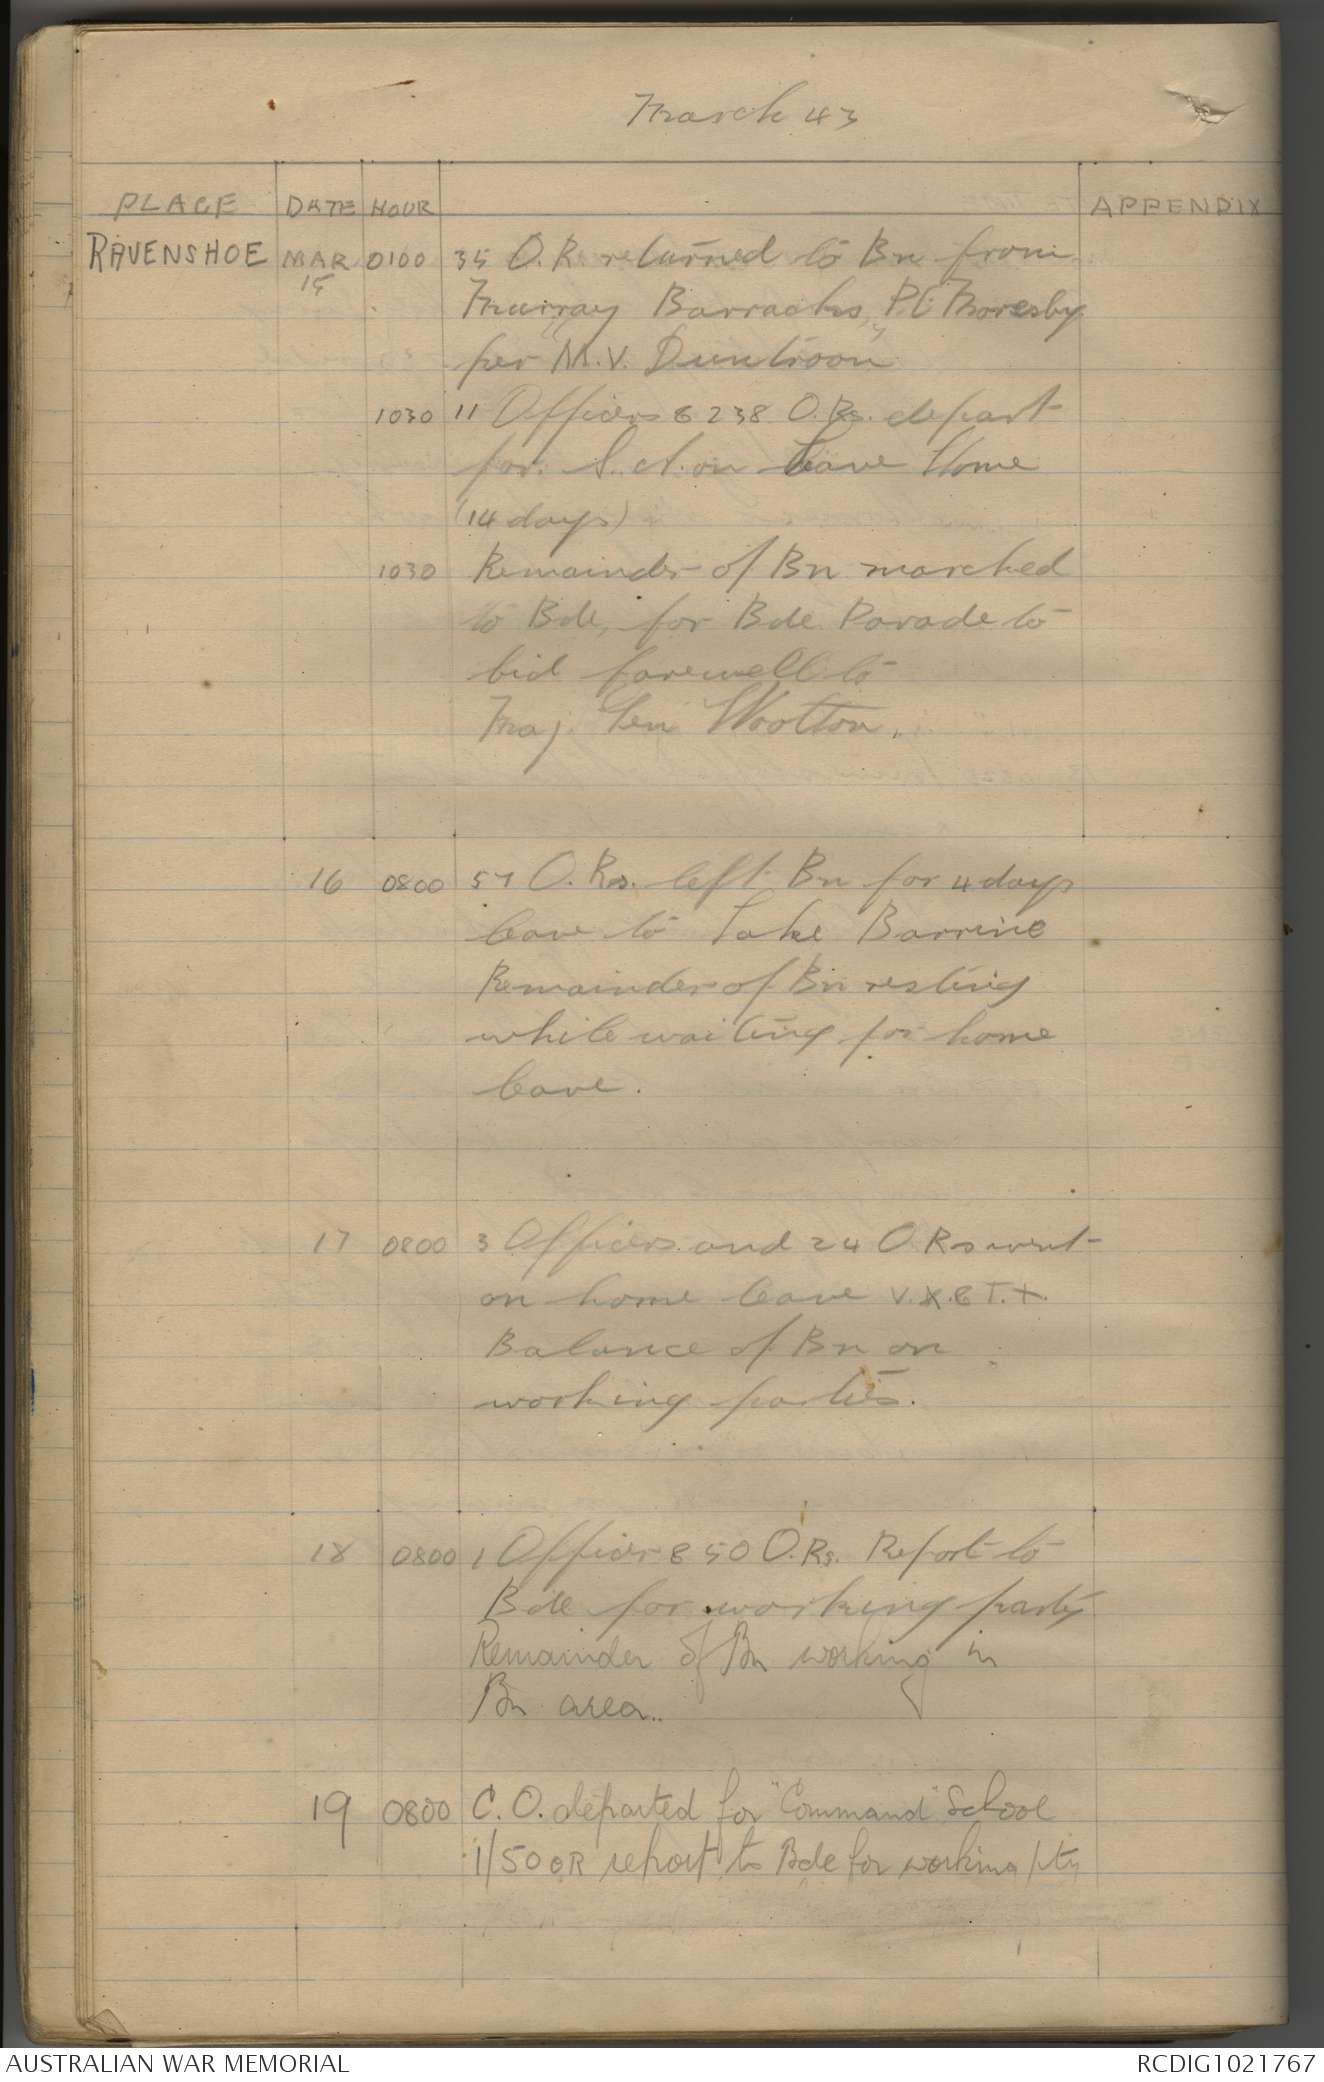 March 43
PLACE DATE HOUR APPENDIX
RAVENSHOE MAR 15 0100 35 O.R. returned to Bn from
Murray Barracks, Pt Moresby
per "M.V. Duntroon"
1030 11 Officers & 238 O.Rs. depart
for S.A. on Leave Home
(14 days)
1030 Remainder of Bn marched
to Bde, for Bde Parade to
bid farewell to
Maj. Gen Wootton.
16 0800 57 O.Rs. left Bn for 4 days
leave to Lake Barrine
Remainder of Bn resting
while waiting for home
leave.
17 0800 3 Officers and 24 O.Rs went
on home leave V.X. & T.X.
Balance of Bn on
working parties.
18 0800 1 Officer & 50 O.Rs. Report to
Bde for working party
Remainder of Bn working in
Bn area..
19 0800 C.O. departed for "Command" School
1/50 OR report to Bde for working pty
AUSTRALIAN WAR MEMORIAL RCDIG1021767